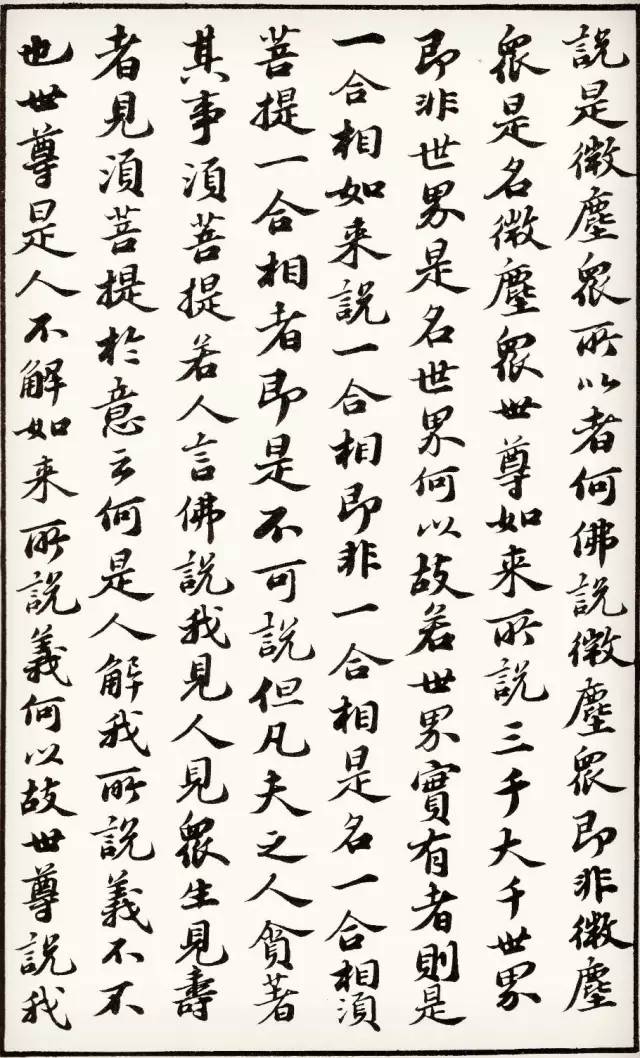 說是微塵眾所以者何佛說微塵眾即非微塵
眾是名微塵眾世尊如来所說三千大千世界
即非世界是名世界何以故若世界實有者則是
一合相如来說一合相即非一合相是名一合相湏
菩提一合相者即是不可說但凡夫之人貪著
其事湏菩提若人言佛說我見人見眾生見壽
者見湏菩提於意云何是人解我所說義不不
也世尊是人不解如来所說義何以故世尊說我